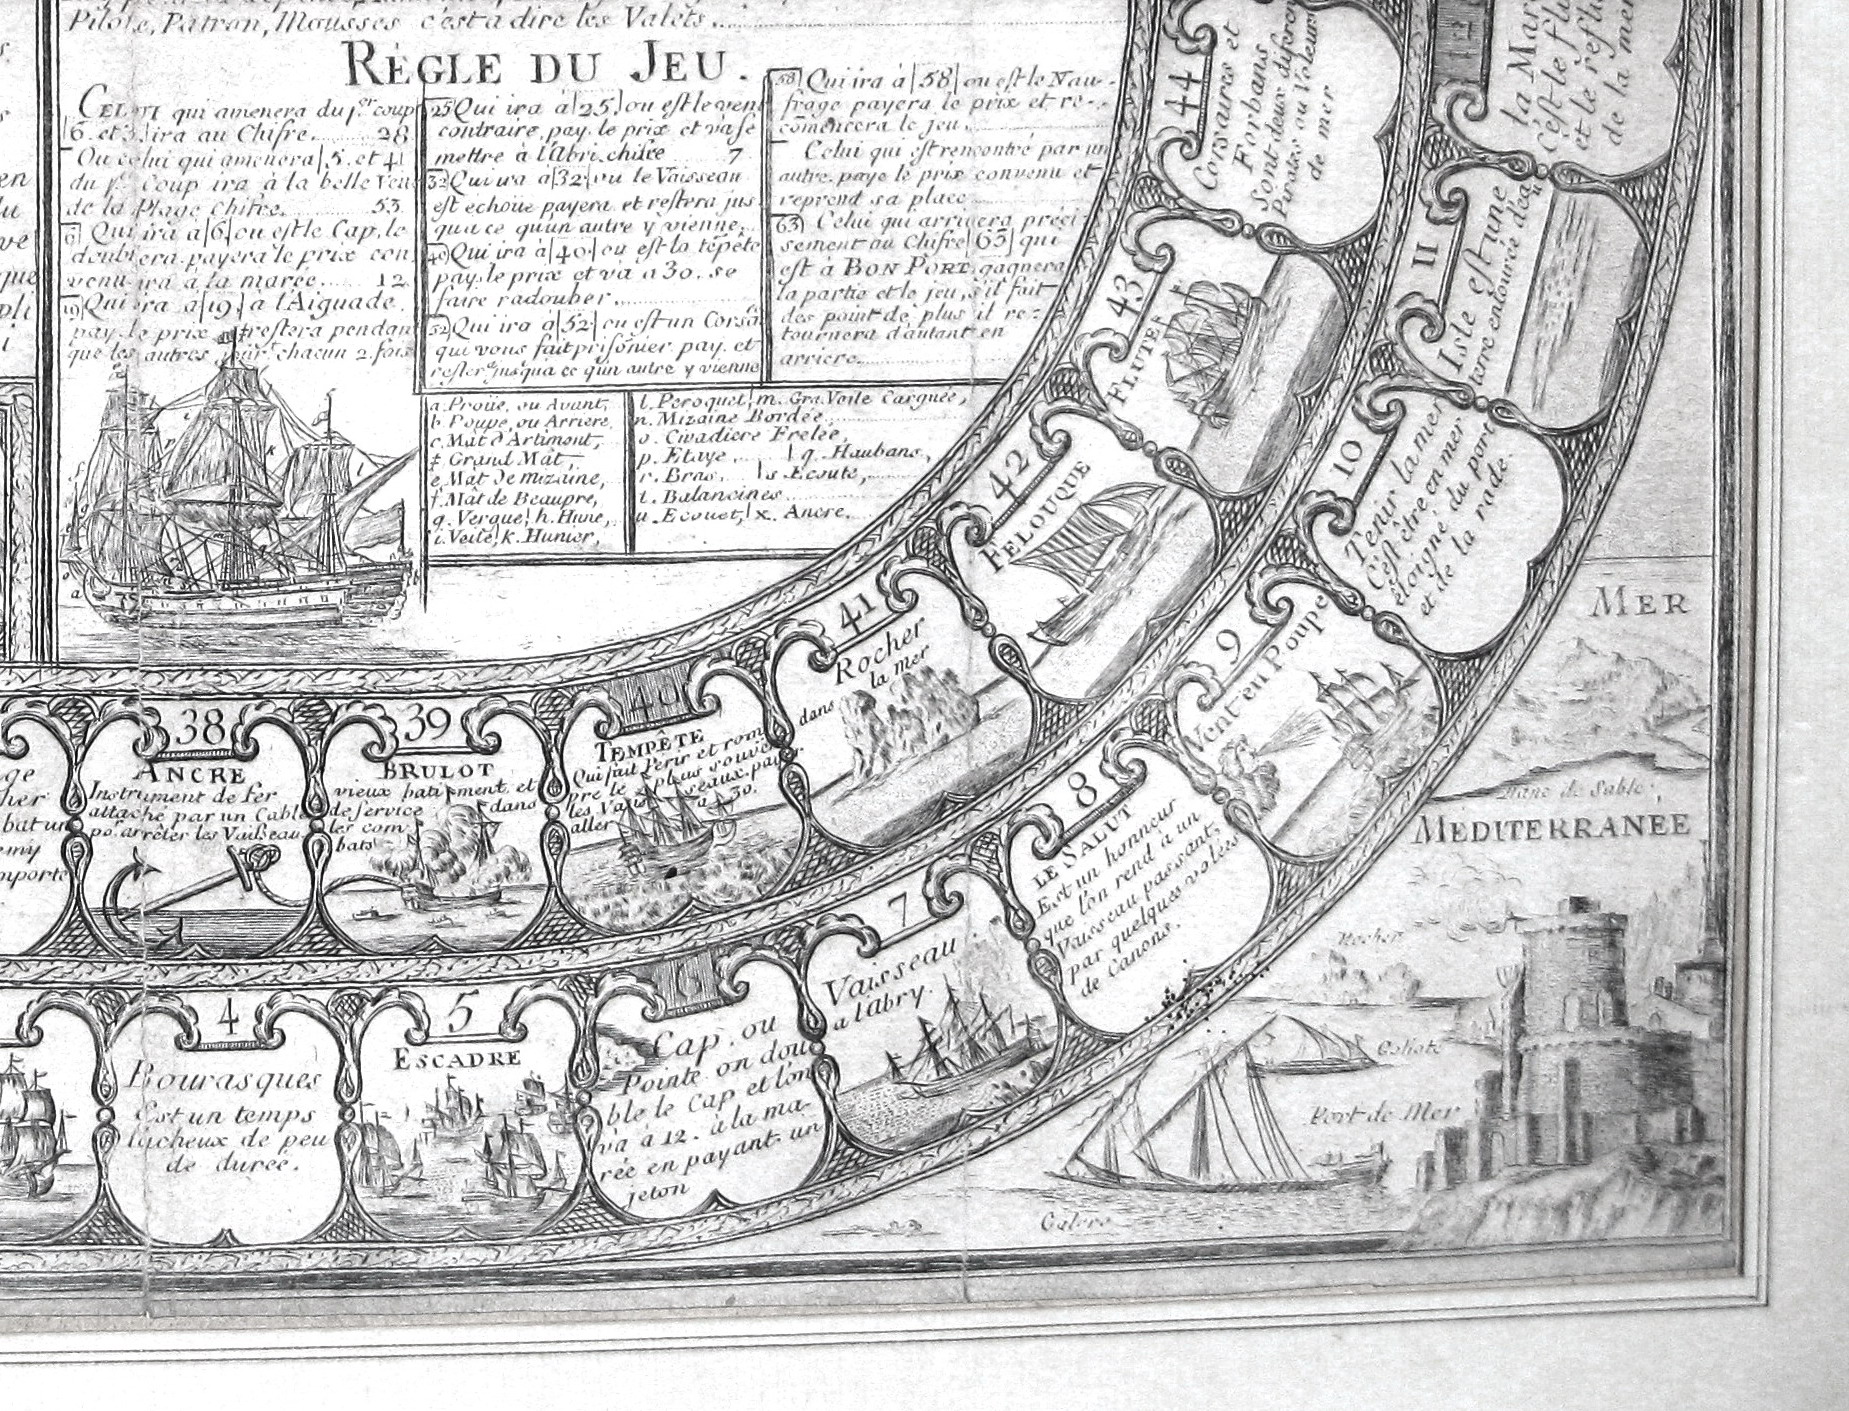 Pilote, Patron, Mousses c'est a dire les Valets
RÈGLE DU JEU.
CELUI qui amenera du p.er coup
6. et 3. ira au Chifre 28
Ou celui qui amenera 5. et 4
du p.er Coup ira à la belle Vue
de la Plage chifre. 53
6 Qui ira à 6 ou est le Cap, le
doublera payera le prix con
venu ira à la marée 12
19 Qui ira à 19 à l'Aiguade
pay. le prix restera pendant
que les autres chacun 2. fois
25 Qui ira à 25 ou est le vent
contraire, pay. le prix et va se
mettre à l'Abri, chifre 7
32 Qui ira à 32 ou le Vaisseau
est echoué payera et restera jus
qua ce qu'un autre y vienne,
40 Qui ira à 40 ou est la tépête
pay. le prix et va a 30. se
faire radouber
52 Qui ira à 52 ou est un Corsā
qui vous fait prisónier pay. et
jusqua ce qun autre y vienne
58 Qui ira à 58 ou est le Nau-
frage payera le prix et re-
cómencera le jeu,
Celui qui est rencontré par un
autre. paye le prix convenu et
reprend sa place
63 Celui qui arrivera préci-
sement au Chifre 63 qui
est à BON PORT. gagnera
la partie et le jeu, s'il fait
des point de plus il re-
tournera d'autant en
arriere
a. Proüe, ou Avant,
b. Poupe, ou Arriere,
c. Mât d'Artimont,
Grand Mât,
e. Mât de mizaine,
f. Mât de Beaupre,
g. Vergue, h. Hune,
i. Veile, k. Hunier,
l. Peroquet, m. Gra. Voile Carguée,
n. Mizaine Bordée
o. Civadiere Frelée,
p. Etaye, q. Haubans,
r. Bras, s. Ecoute,
t. Balancines
u. Ecouet, x. Ancre.
44
Corsaires et
Forbans
Sont deux
Pirates ou Voleurs
de mer
43
FLUTE
42
FELOUQUE
41
Rocher
dans la mer
40
TEMPÊTE
Qui fait Perir et rom
pre le plus souvent
les Vaisseaux. pay
aller à 30.
39
BRULOT
vieux batiment et
de service dans
les com
bats
38
ANCRE
Instrument de fer
attaché par un Cable
po. arrêter les Vaisseau
4
Bourasques
Est un temps
facheux de peu
de durée.
5
ESCADRE
6
Cap, ou
Pointe. on dou
ble le Cap et l'on
va à 12. à la ma-
rée en payant un
jeton
7
Vaisseau
a l'abry.
8
LE SALUT
Est un honneur
que l'on rend à un
Vaisseau passant
par quelques volées
de Canons.
9
Vent en Poupe
10
Tenir la mer
C'est être en mer
éloigné du port
et de la rade.
11
Isle est une
terre entourée d'eau
12
la Mar
C'est le flu
et le reflu
de la mer
MER
Banc de Sable,
MEDITERRANEE
Rocher
Galiote
Port de Mer
Galere